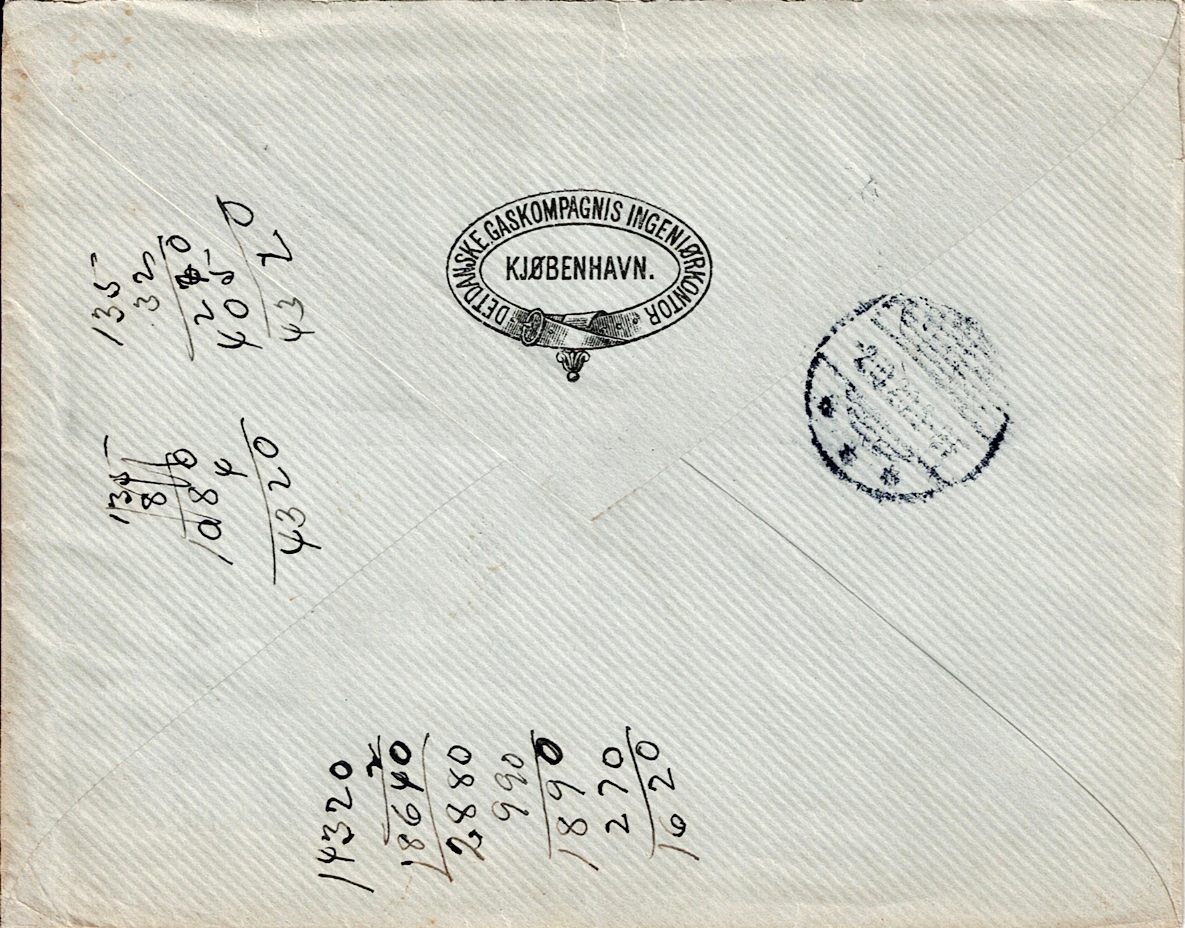 DET DANSKE GASKOMPAGNIS INGENIØRKONTOR
KJØBENHAVN.
135
32
405
4320
135
8
4
4320
14320
2
18640
2880
990
1890
270
1620